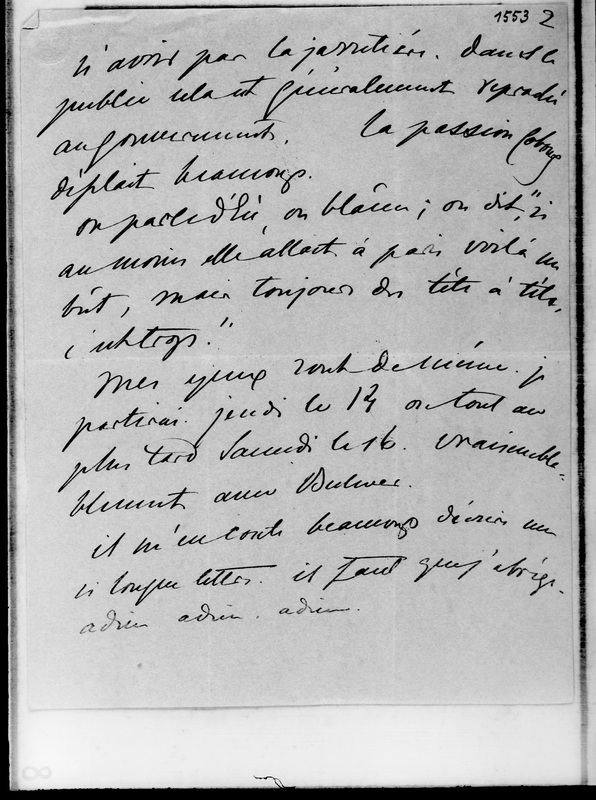 1553 2
si avoir par la jarretière. dans le
public cela est généralement reproché
au gouvernement. la passion Cobourg
déplait beaucoup.
on parle d'Eu, on blâme ; on dit, "si
au moins elle allait à paris voilà un
bût, mais toujours des tête à tête,
c'est trop."
Mes yeux sont de même. je
partirai jeudi le 14 ou tout au
plus tard Samedi le 16. vraisembla-
blement avec Bulwer.
il m'en coute beaucoup d'écrire une
si longue lettre. il faut que j'abrège.
adieu adieu. adieu.